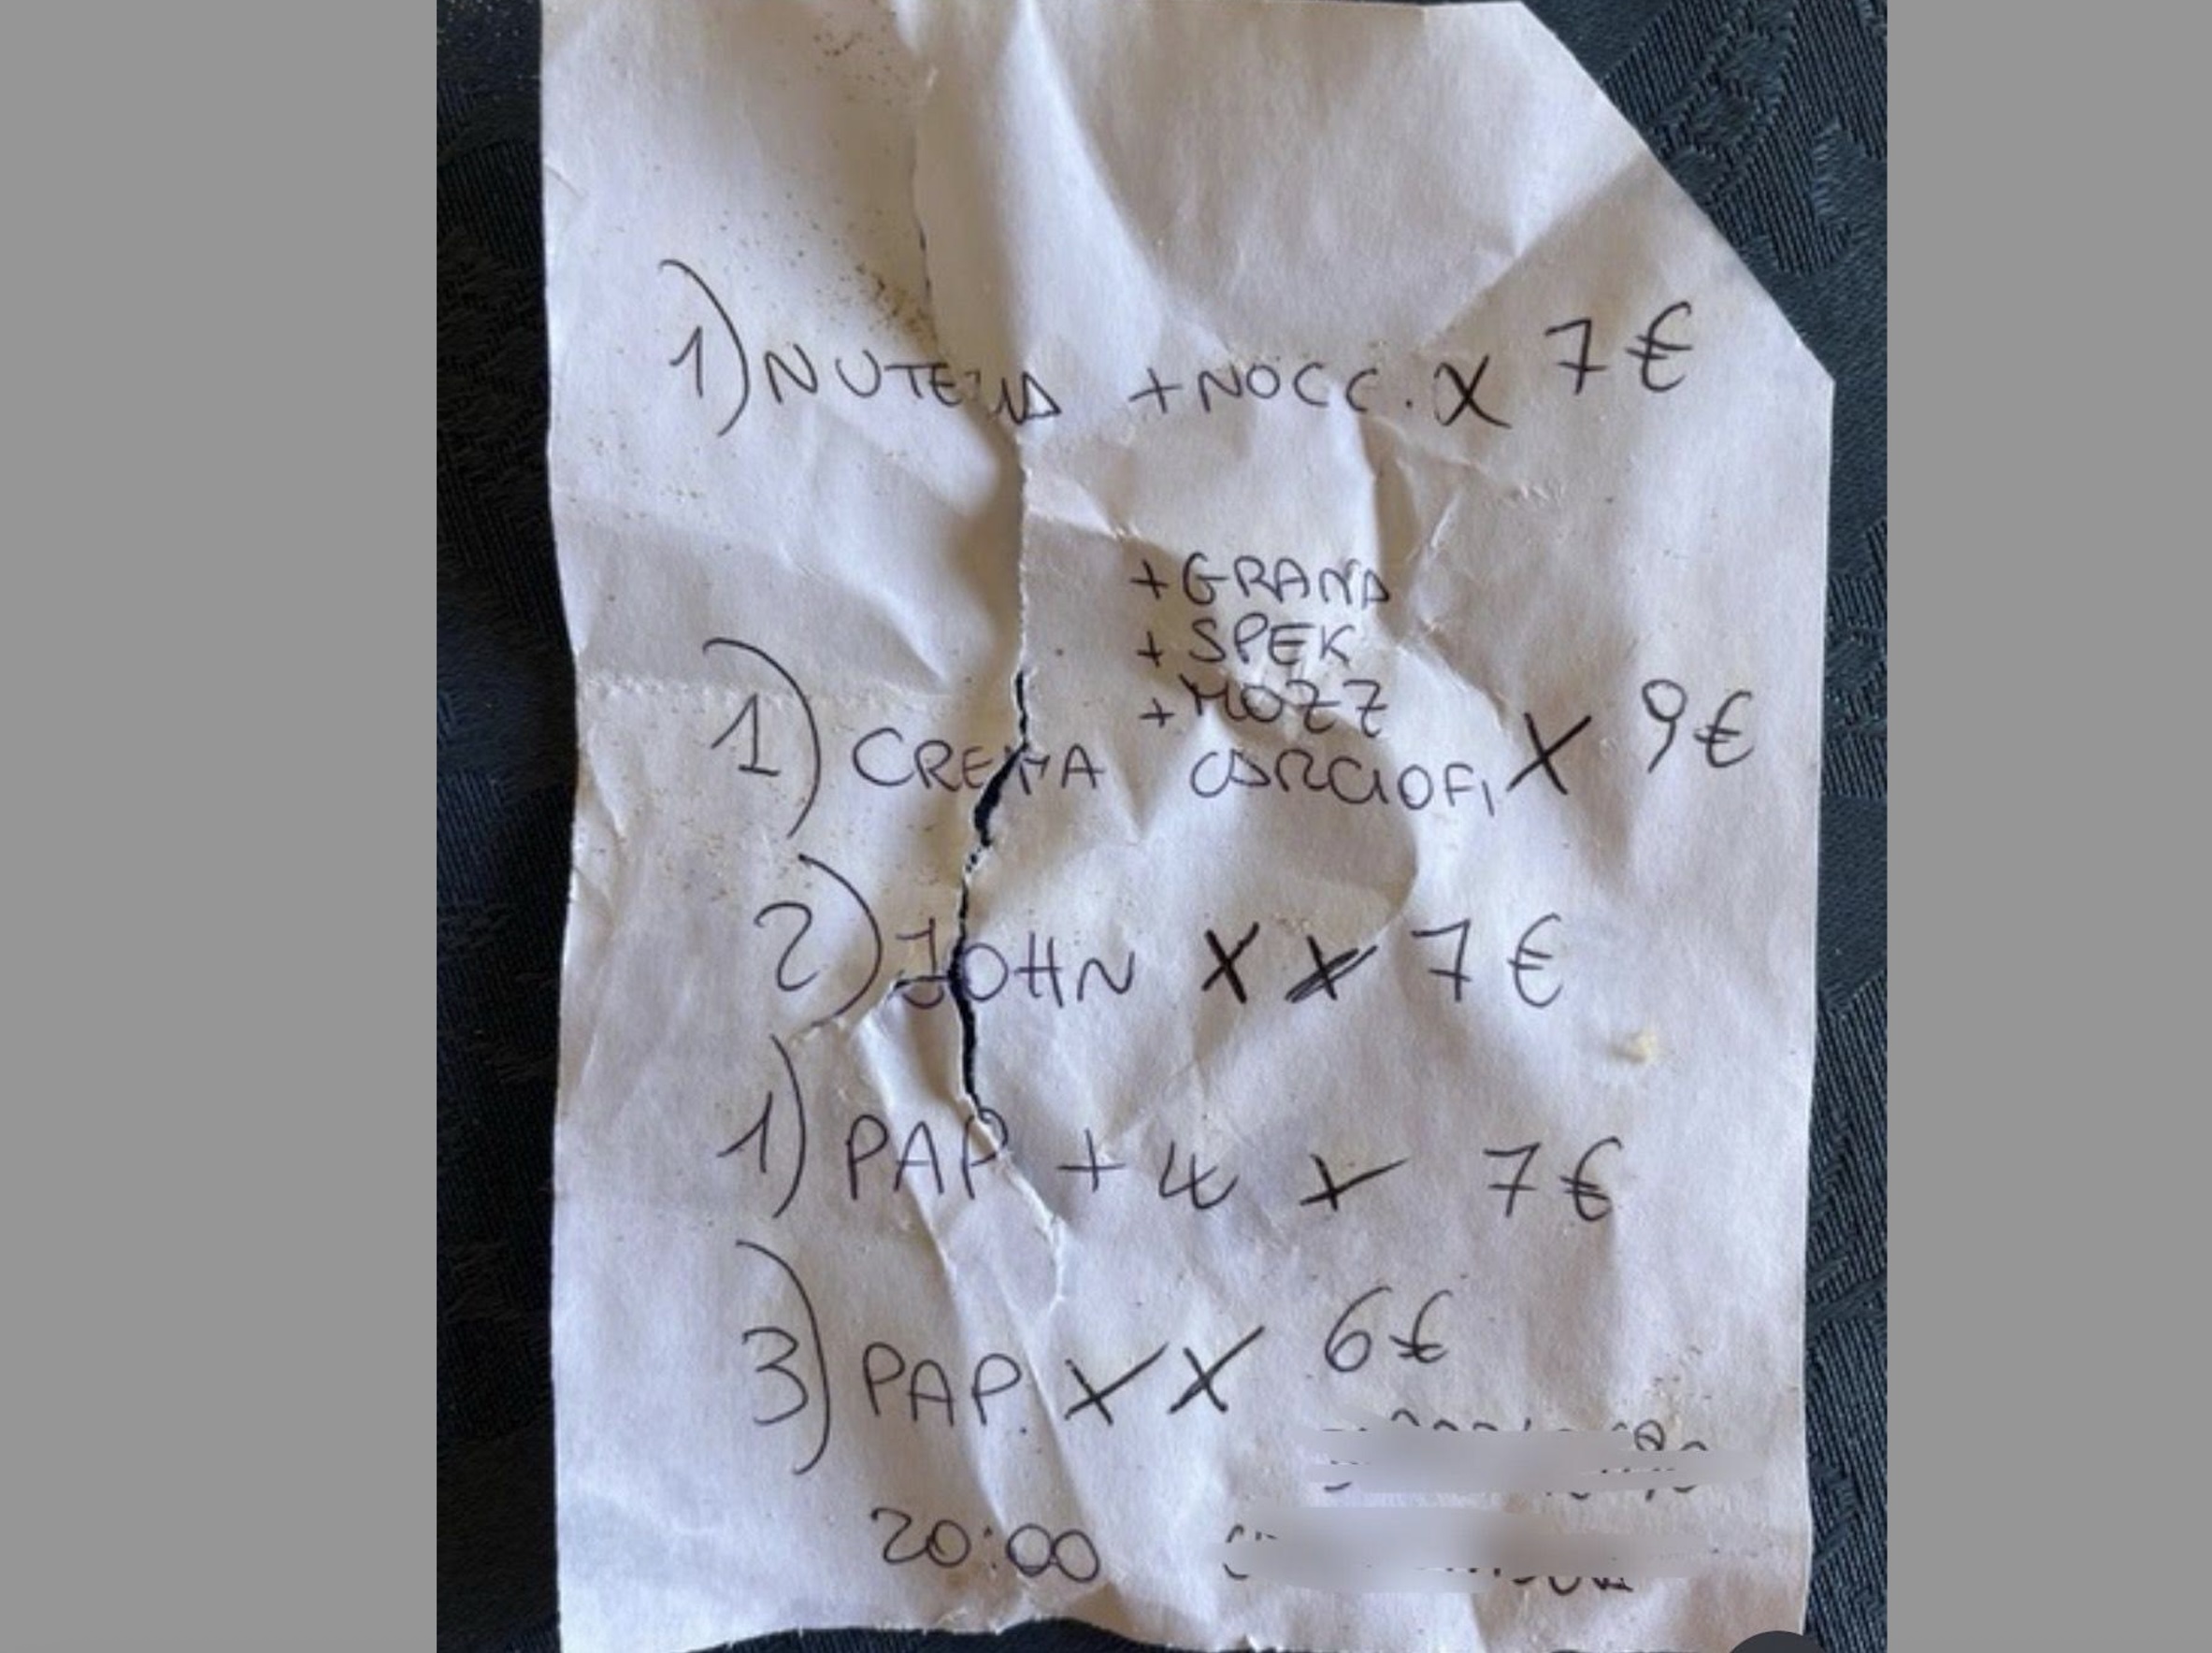 1) NUTELLA + NOCC. X 7€
+ GRANA
+ SPEK
+ MOZZ
1) CREMA CARCIOFI X 9€
2) JOHN X X 7€
1) PAP + 4 X 7€
3) PAP. X X 6€
20:00